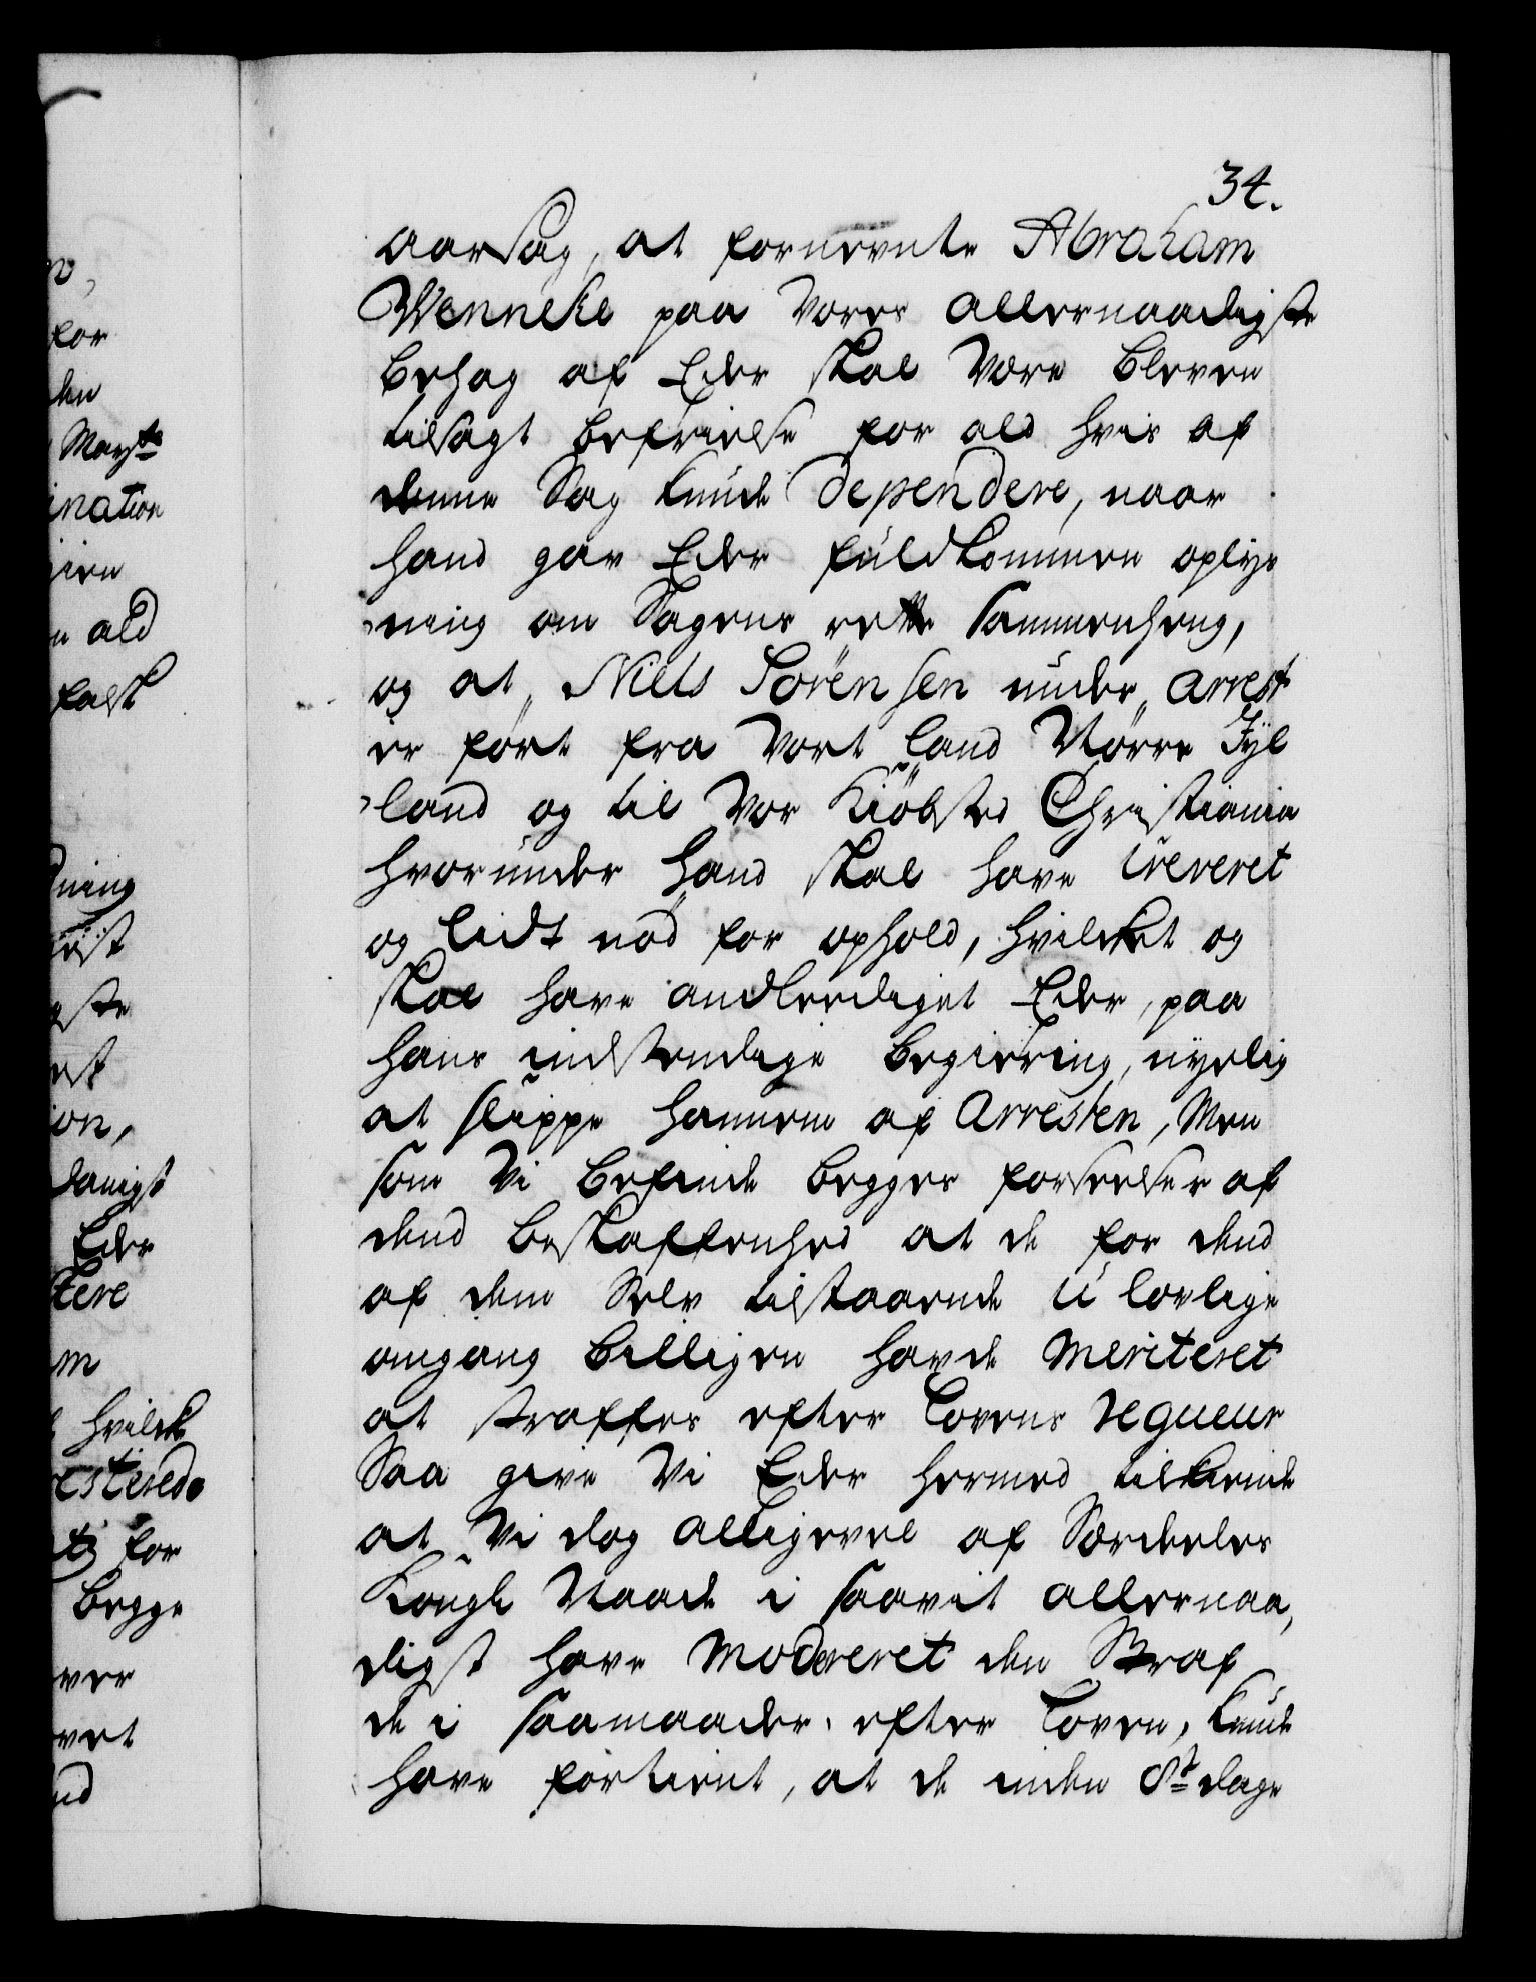 34.
aarsag, at fornevnte Abraham
Wenneke paa Vores allernaadigste
behag af Eder skal være bleven
tilsagt befrielse for ald hvis af
denne Sag kunde dependere, naar
hand gav Eder fuldkommen oplys
ning om Sagens rette sammenheng,
og at Niels Sørensen under arrest
er ført fra Vort land Nørre Jyl
land og til Vor Kiøbsted Christiania
hvorunder hand skal have creveret
og lidt nød for ophold, hvilket og
skal have andlediget Eder, paa
hans indstendige begiering, nyelig
at slippe hannem af Arresten, Men
som Vi befinde begges forseelser af
dend beskaffenhed at de for dend
af dem Selv tilstaaende u lovlige
omgang billigen havde meriteret
at straffes efter Lovens regueur
Saa give Vi Eder hermed tilkiende
at Vi dog alligevel af Særdeles
Kongl Naade i saavit allernaa,
digst have modereret den Straf
de i saamaader, efter Loven, kunde
have fortient, at de inden 8te dage
for
den
Mayts
ination
ald
falsk
dning
ion,
danigst
Eder
tere
m
hvilcke
resterede
for
begge
ver
vet